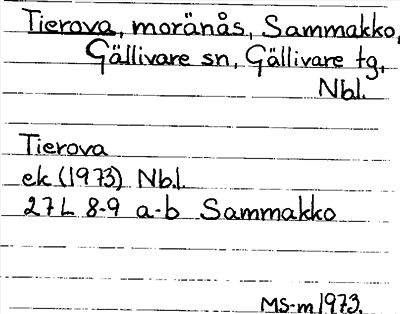 Tierova, moränås, Sammakko,
Gällivare sn, Gällivare tg,
Nbl.
Tierova
ek (1973) Nbl.
27L 8-9 a-b Sammakko
MS-m 1973.